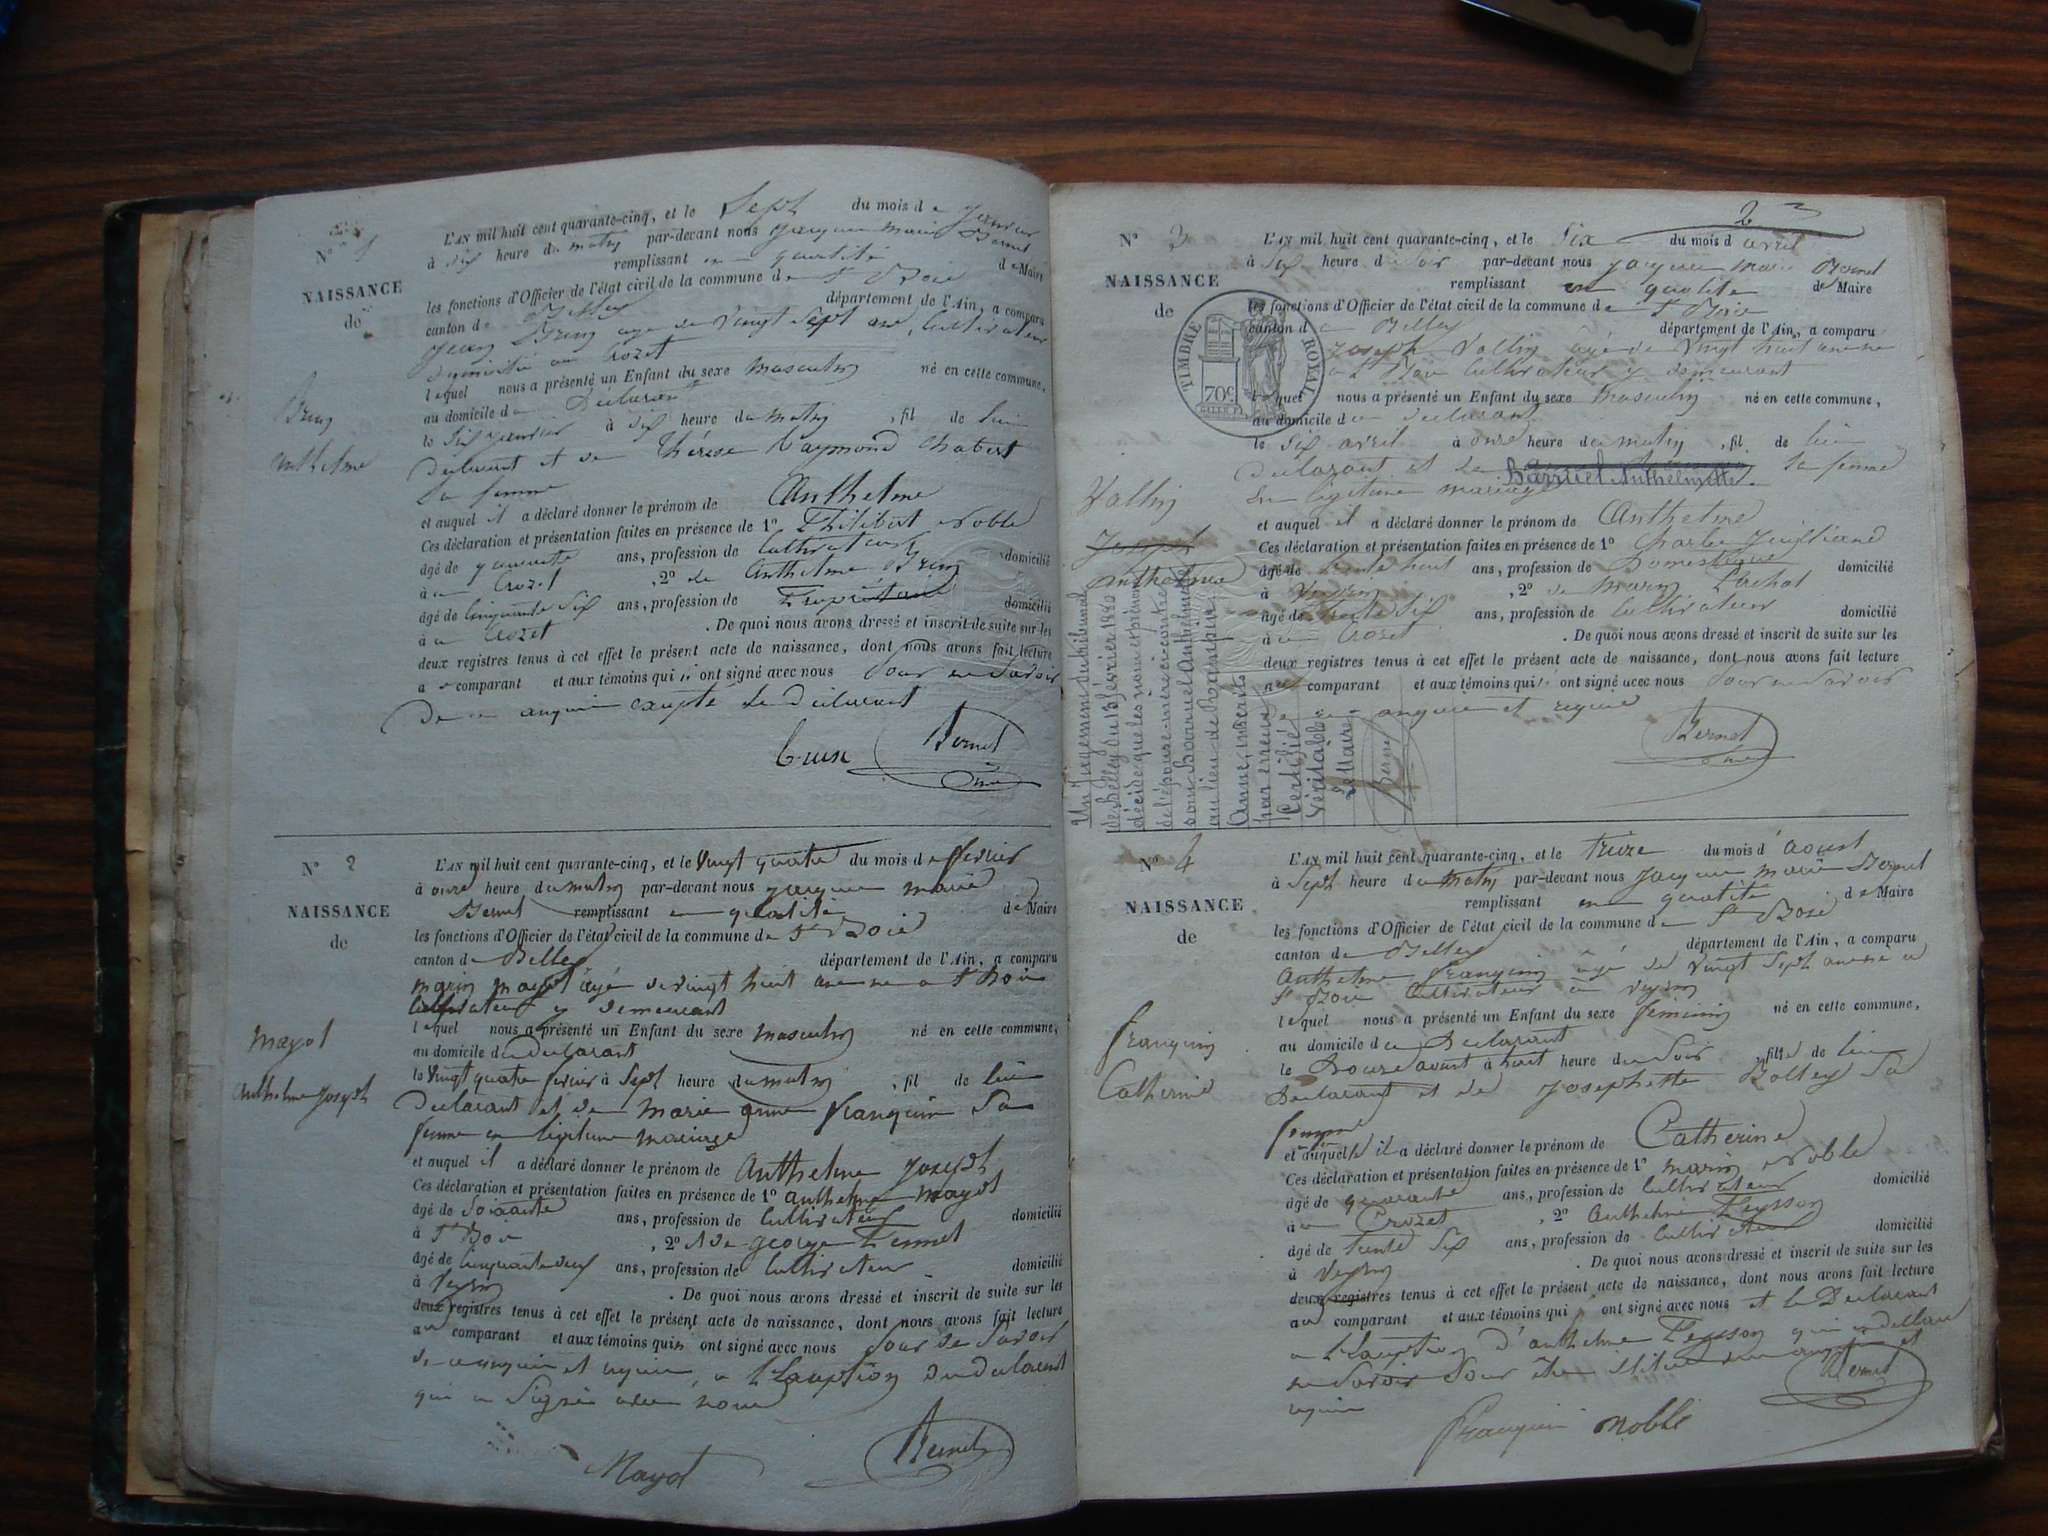 N° 1
NAISSANCE
de
Brun
Anthelme
L'AN mil huit cent quarante-cinq, et le Sept du mois de Janvier
à dix heure du matin par-devant nous Jacques marie Bernet
remplissant en qualité de Maire
les fonctions d'Officier de l'état civil de la commune de St Boie
canton de Belley département de l'Ain, a comparu
Jean Brun agé de vingt Sept ans, Cultivateur
domicilié au Crozet
lequel nous a présenté un Enfant du sexe masculin né en cette commune,
au domicile du Déclarant
le six janvier à six heure du matin, fil de lui
Déclarant et de Thérèse Vaymond Chabert
Sa femme
et auquel il a déclaré donner le prénom de Anthelme
Ces déclaration et présentation faites en présence de 1° Philibert Noble
âgé de quarante ans, profession de Cultivateur domicilié
à au Crozet, 2° de Anthelme Brun
âgé de Cinquante Six ans, profession de Propriétaire domicilié
à au Crozet. De quoi nous avons dressé et inscrit de suite sur les
deux registres tenus à cet effet le présent acte de naissance, dont nous avons fait lecture
a comparant et aux témoins qui ont signé avec nous Pour en Savoir
De ce enquis excepté le Déclarant
Brun Bernet
N° 2
NAISSANCE
de
Mayot
Anthelme Joseph
L'AN mil huit cent quarante-cinq, et le Vingt quatre du mois de fevrier
à onze heure du matin par-devant nous Jacques marie
Bernet remplissant en qualité de Maire
les fonctions d'Officier de l'état civil de la commune de St Boie
canton de Belley département de l'Ain, a comparu
marin mayot âgé de vingt huit ans né a St Boie
Cultivateur y demeurant
lequel nous a présenté un Enfant du sexe masculin né en cette commune,
au domicile du Déclarant
le Vingt quatre fevrier à Sept heure du matin, fil de lui
Déclarant et de Marie anne franquin Sa
femme en légitime mariage
et auquel il a déclaré donner le prénom de Anthelme Joseph
Ces déclaration et présentation faites en présence de 1° anthelme mayot
âgé de Soixante ans, profession de Cultivateur domicilié
à St Boie, 2° de george
âgé de Cinquante deux ans, profession de Cultivateur domicilié
à Veyrin. De quoi nous avons dressé et inscrit de suite sur les
deux registres tenus à cet effet le présent acte de naissance, dont nous avons fait lecture
au comparant et aux témoins qui n ont signé avec nous Pour de Savoir
de ce enquis et requis, a l'Exception du declarant
qui a Signé avec nous
Mayot Bernet
2
N° 3
NAISSANCE
de
TIMBRE ROYAL
70c
Vallin
Joseph
Anthelme
Un Jugement du tribunal
de Belley du 13 février 1880
décide que les nom et prénom
de l'épouse-mère ci-contre
sont Barruel Anthelmette
au lieu de
Anne, inscrits
par erreur
Certifié
Véritable
L'AN mil huit cent quarante-cinq, et le Six du mois d avril
à six heure du soir par-devant nous Jacques Marie Bernet
remplissant en qualité de Maire
les fonctions d'Officier de l'état civil de la commune de St Boie
canton de Belley département de l'Ain, a comparu
Joseph Vallin âgé de Vingt huit ans né
a St Boie Cultivateur y demeurant
lequel nous a présenté un Enfant du sexe Masculin né en cette commune,
au domicile du declarant
le six avril à onze heure du matin, fil de lui
Declarant et de Barruel Anthelmette. Sa femme
En légitime mariage
et auquel il a déclaré donner le prénom de Anthelme
Ces déclaration et présentation faites en présence de 1° Charles
âgé de trente huit ans, profession de Domestique domicilié
à Veyrin, 2° de Marin Pachot
âgé de trente six ans, profession de Cultivateur domicilié
à au Crozet. De quoi nous avons dressé et inscrit de suite sur les
deux registres tenus à cet effet le présent acte de naissance, dont nous avons fait lecture
au comparant et aux témoins qui ont signé avec nous Pour en Savoir
de ce enquis et requis
Bernet
N° 4
NAISSANCE
de
franquin
Catherine
L'AN mil huit cent quarante-cinq, et le treize du mois d'aoust
à Sept heure du matin par-devant nous Jacques Marie Bernet
remplissant en qualité de Maire
les fonctions d'Officier de l'état civil de la commune de St Boie
canton de Belley département de l'Ain, a comparu
Anthelme franquin âgé de Vingt Sept ans né a
St Boie Cultivateur à Veyrin
lequel nous a présenté un Enfant du sexe feminin né en cette commune,
au domicile du Declarant
le Douze aoust à huit heure du Soir, fille de lui
Declarant et de Josephette Bolley Sa
femme
et auquel il a déclaré donner le prénom de Catherine
Ces déclaration et présentation faites en présence de 1° Marin Noble
âgé de quarante ans, profession de Cultivateur domicilié
à au Crozet, 2° Anthelme Peysson
âgé de trente Six ans, profession de Cultivateur domicilié
à Veyrin. De quoi nous avons dressé et inscrit de suite sur les
deux registres tenus à cet effet le présent acte de naissance, dont nous avons fait lecture
au comparant et aux témoins qui ont signé avec nous et le Declarant
a l'Exception d'anthelme Peysson qui a déclaré
ne Savoir Pour être illitéré de ce enquis et
requis
Bernet
Franquin Noble